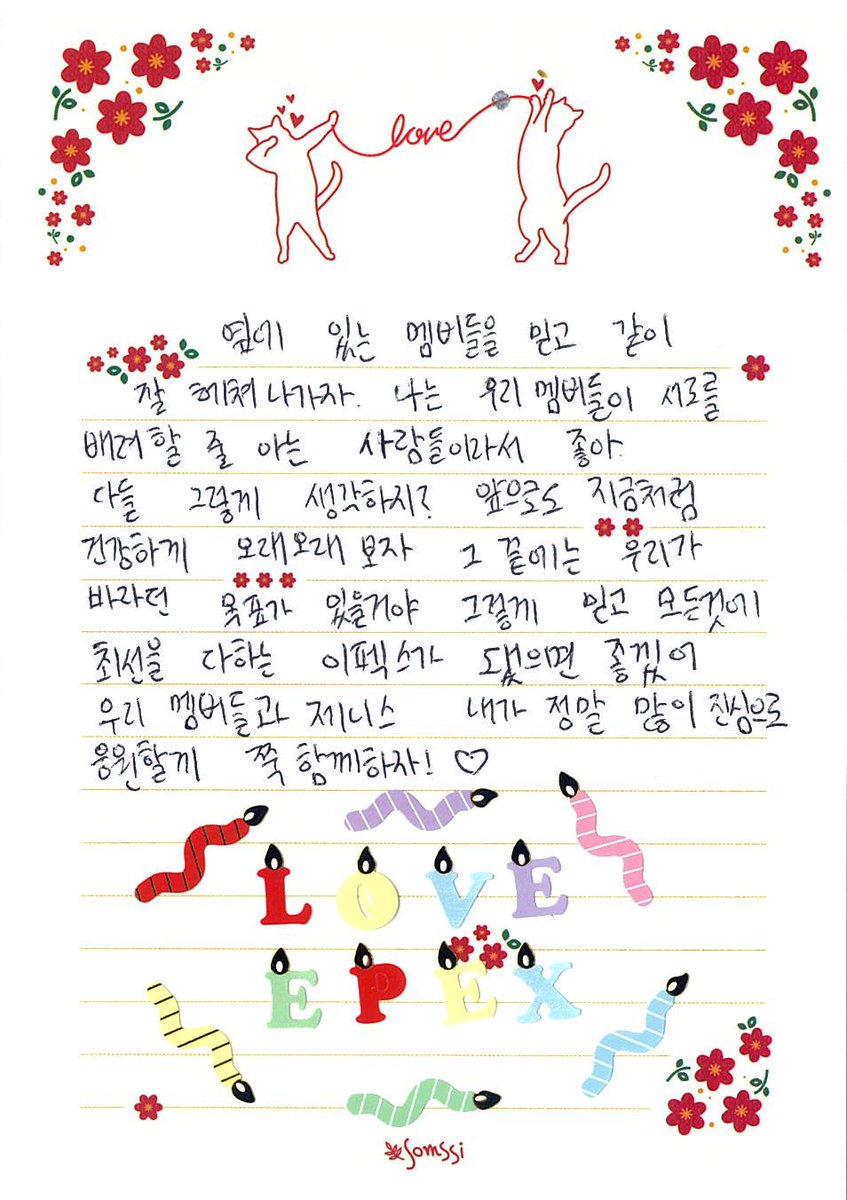 love
옆에 있는 멤버들을 믿고 같이
잘 헤쳐나가자. 나는 우리 멤버들이 서로를
배려할 줄 아는 사람들이라서 좋아.
다들 그렇게 생각하지? 앞으로도 지금처럼
건강하게 오래오래 보자 그 끝에는 우리가
바라던 목표가 있을거야 그렇게 믿고 모든것에
최선을 다하는 이펙스가 됐으면 좋겠어
우리 멤버들과 제니스 내가 정말 많이 진심으로
응원할게 쭉 함께하자! ♡
LOVE
EPEX
Somssi